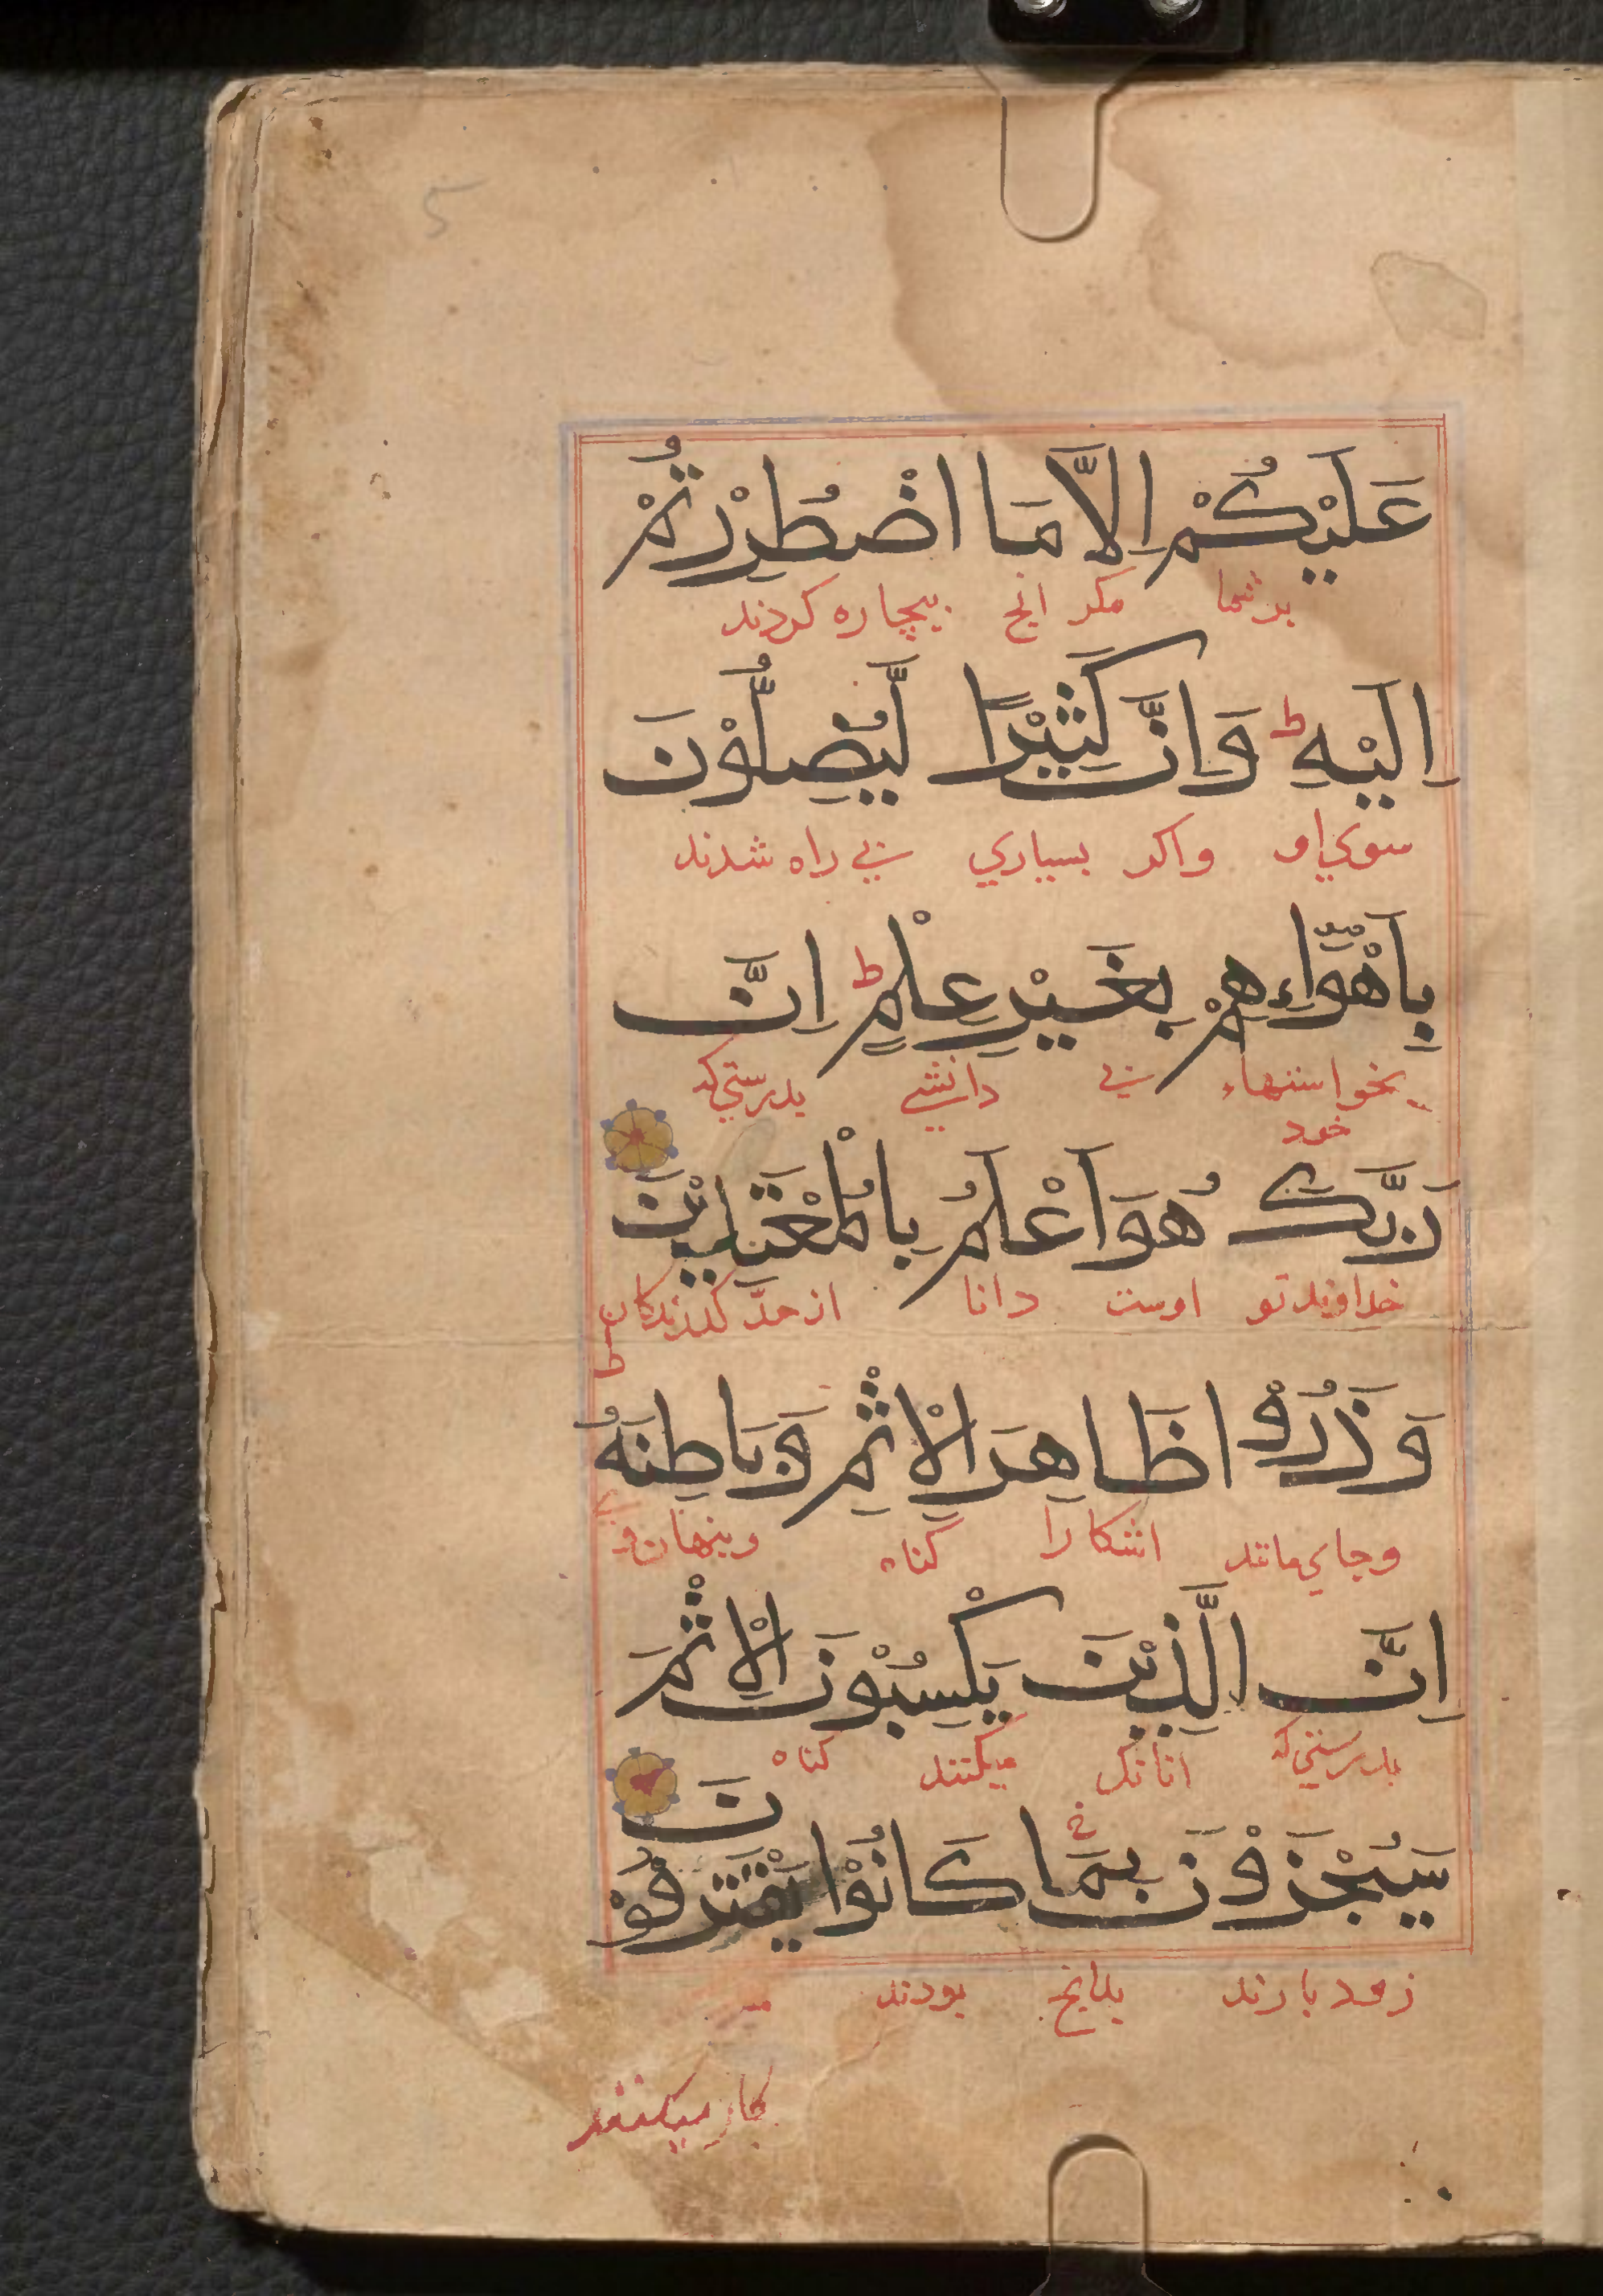 5
عَلَيْكُمْ اِلَّا مَا اضْطُرِرْتُمْ
بر شما مکر انچ بیچاره کردند
اِلَيْهِ ط وَاِنَّ كَثِيْرًا لَّيُضِلُّوْنَ
سوي او واکر بسیاري بي راه شدند
بِاَهْوَآءِهِمْ بِغَيْرِ عِلْمٍ ط اِنَّ
بخواستنهاء خود بي دانشي بدرستي که
رَبَّكَ هُوَ اَعْلَمُ بِالْمُعْتَدِيْنَ
خداوند تو اوست دانا از حدّ کذرندکان
ط
وَذَرُوْا ظَاهِرَ الْاِثْمِ وَبَاطِنَهُ
وجاي مانند اشکارا کناه وپنهان
اِنَّ الَّذِيْنَ يَكْسِبُوْنَ الْاِثْمَ
بدرستي که انانک میکنند کناه
سَيُجْزَوْنَ بِمَا كَانُوْا يَقْتَرِفُوْنَ
زود بارند بدانچ بودند
کار میکنند